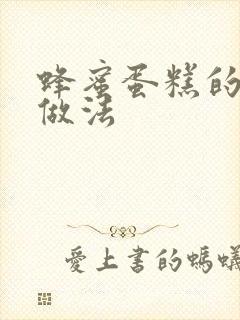 蜂蜜蛋糕的
做法
愛上書的螞蟻